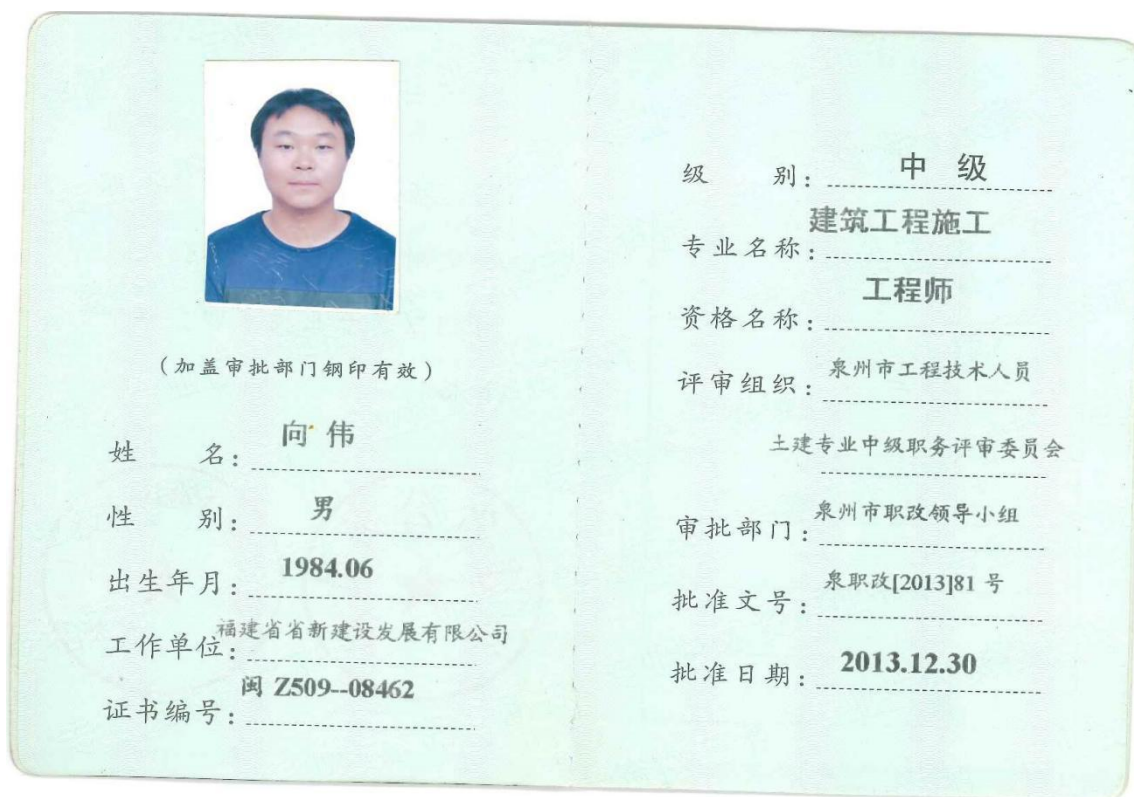 （加盖审批部门钢印有效）
姓 名：向 伟
性 别：男
出生年月：1984.06
工作单位：福建省省新建设发展有限公司
证书编号：闽 Z509--08462
级 别：中 级
专业名称：建筑工程施工
资格名称：工程师
评审组织：泉州市工程技术人员
土建专业中级职务评审委员会
审批部门：泉州市职改领导小组
批准文号：泉职改[2013]81 号
批准日期：2013.12.30